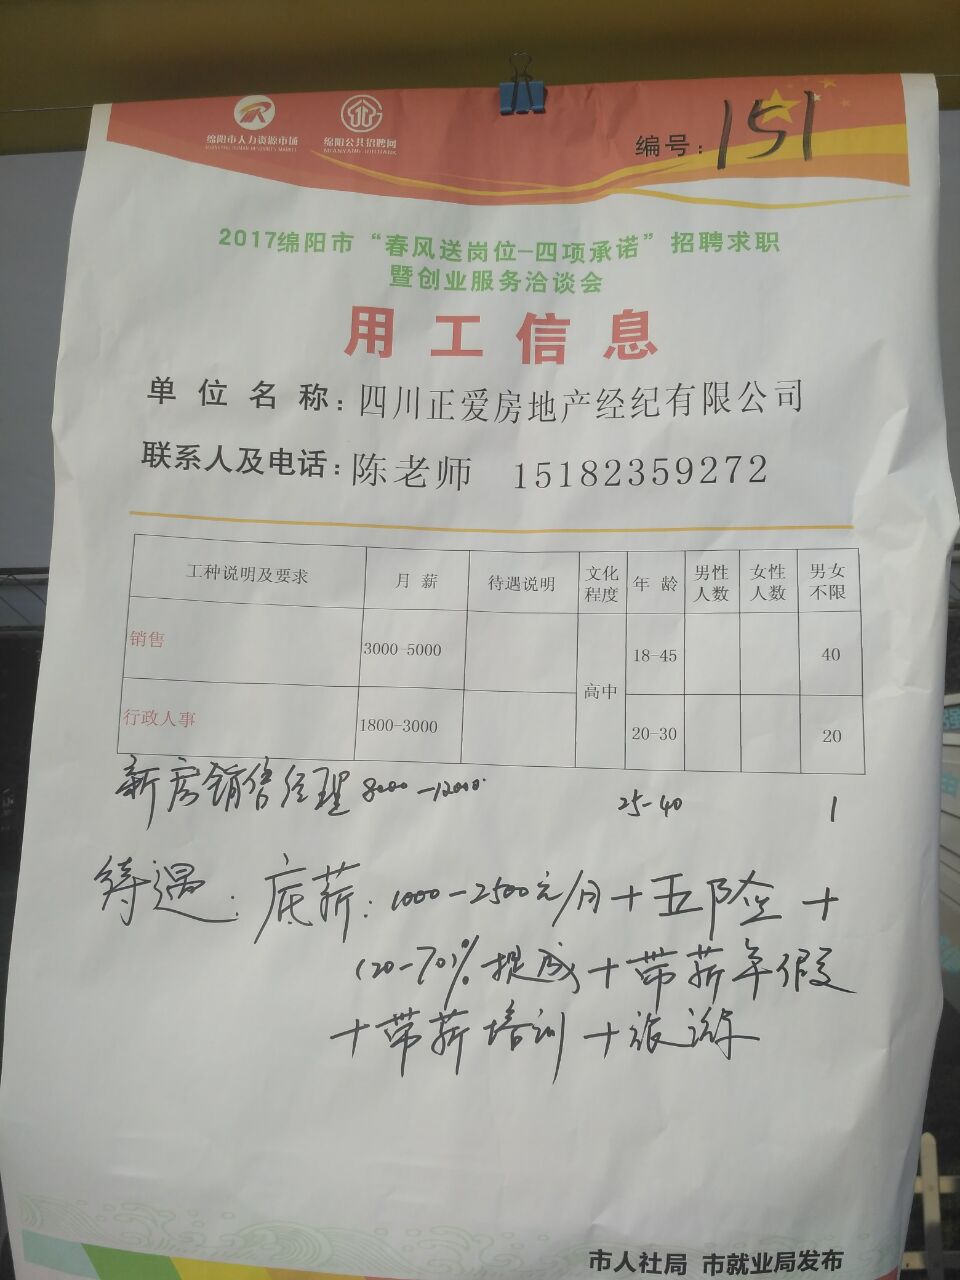 绵阳市人力资源市场 绵阳公共招聘网
编号：151
2017绵阳市“春风送岗位-四项承诺”招聘求职
暨创业服务洽谈会
用工信息
单位名称：四川正爱房地产经纪有限公司
联系人及电话：陈老师 15182359272
工种说明及要求 月薪 待遇说明 文化程度 年龄 男性人数 女性人数 男女不限
销售 3000-5000 高中 18-45 40
行政人事 1800-3000 20-30 20
新房销售经理 8000-12000 25-40 1
待遇：底薪：1000-2500元/月+五险+
(20-70)%提成+带薪年假
+带薪培训+旅游
市人社局 市就业局发布